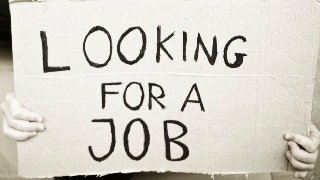 LOOKING
FOR A
JOB